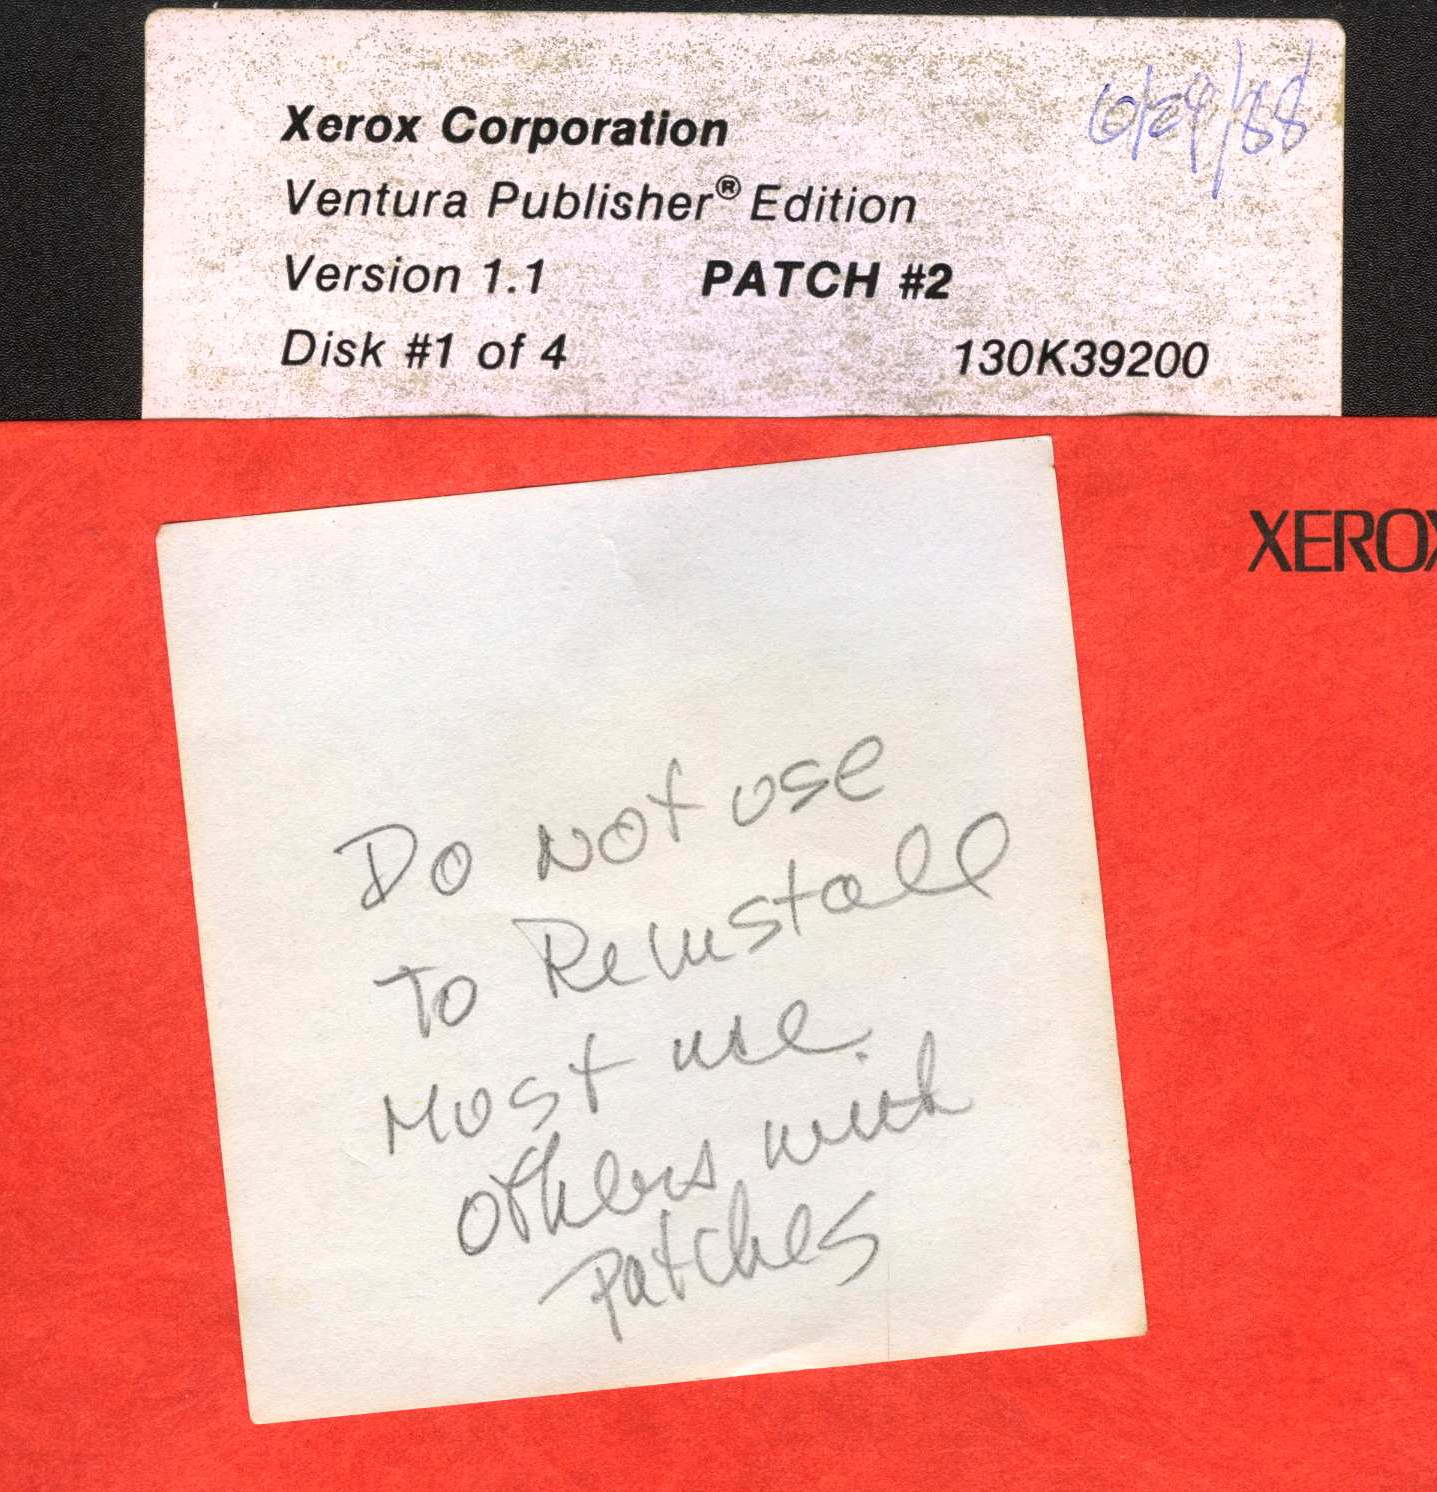 Xerox Corporation
6/29/88
Ventura Publisher® Edition
Version 1.1 PATCH #2
Disk #1 of 4 130K39200
XEROX
Do Not use
To Reinstall
Most use
others with
Patches